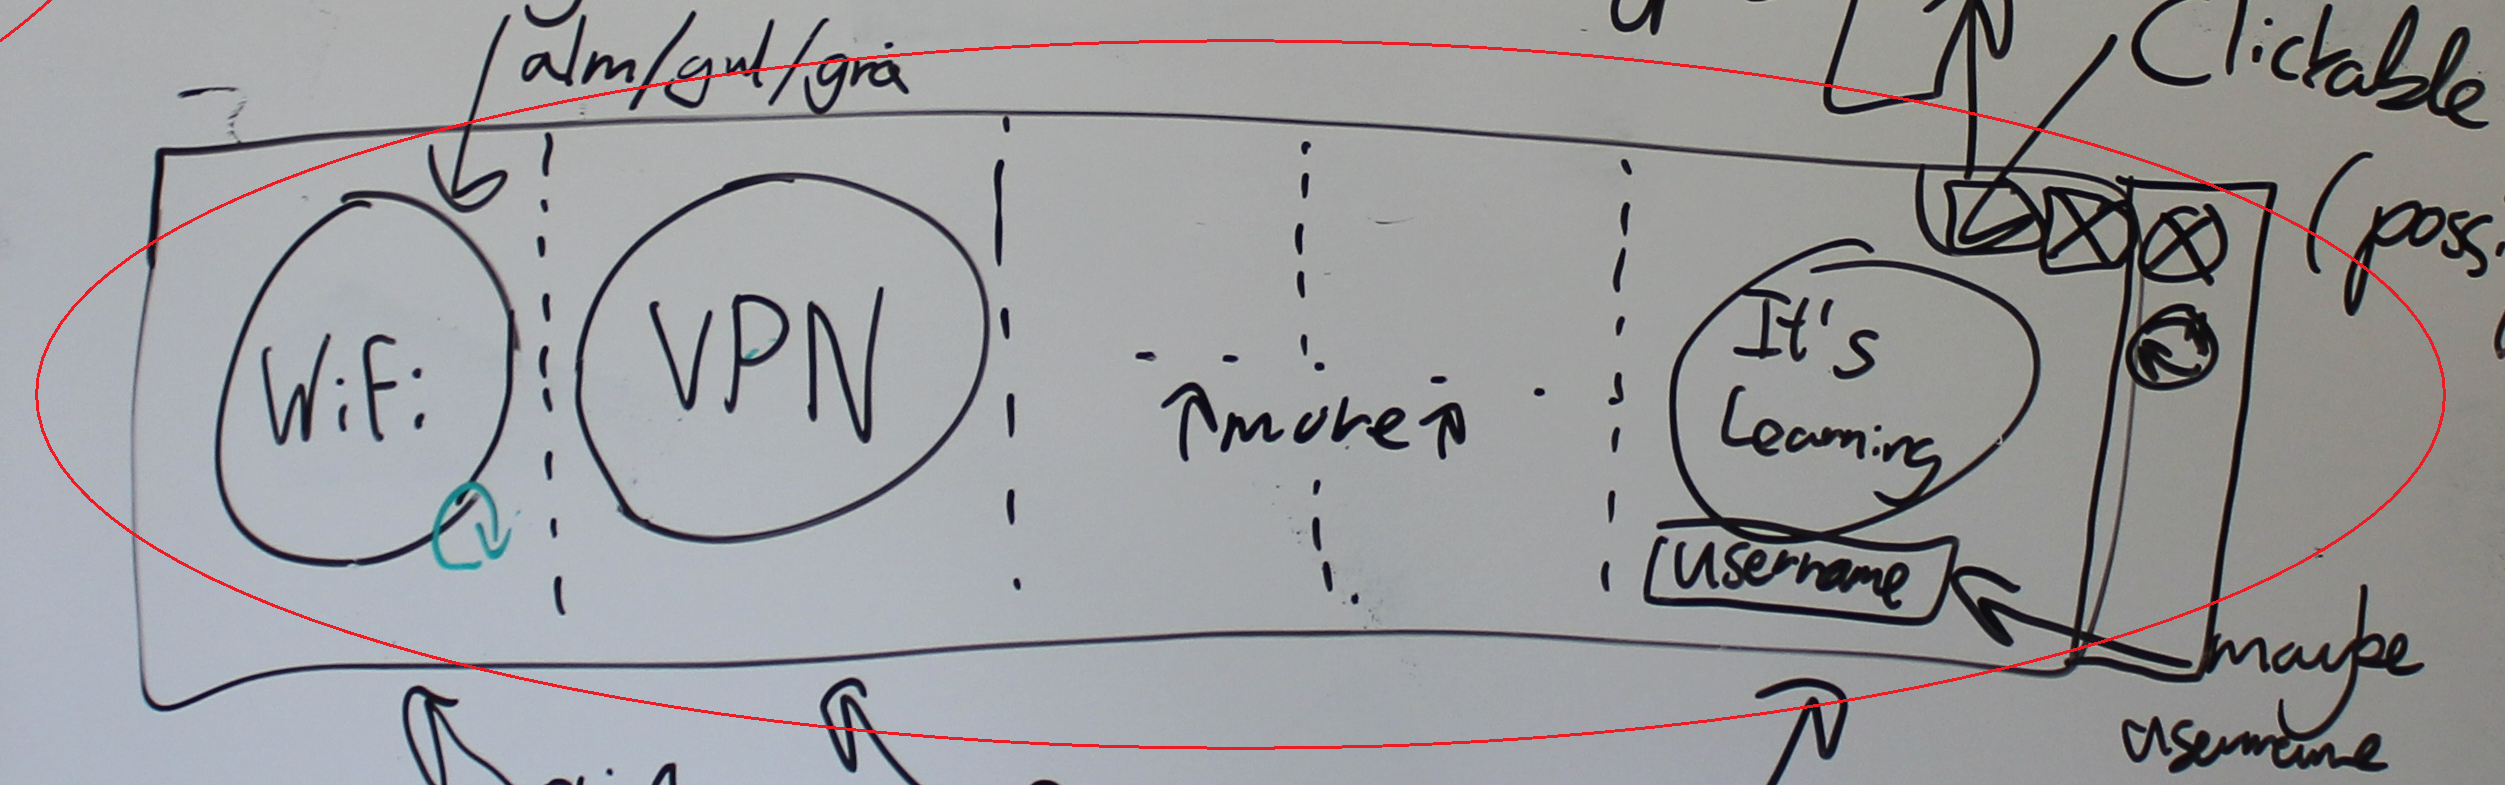 alm/gul/grå
Clickable
(poss.
WiFi
VPN
↑more↑
It's
Learning
Username
maybe
username